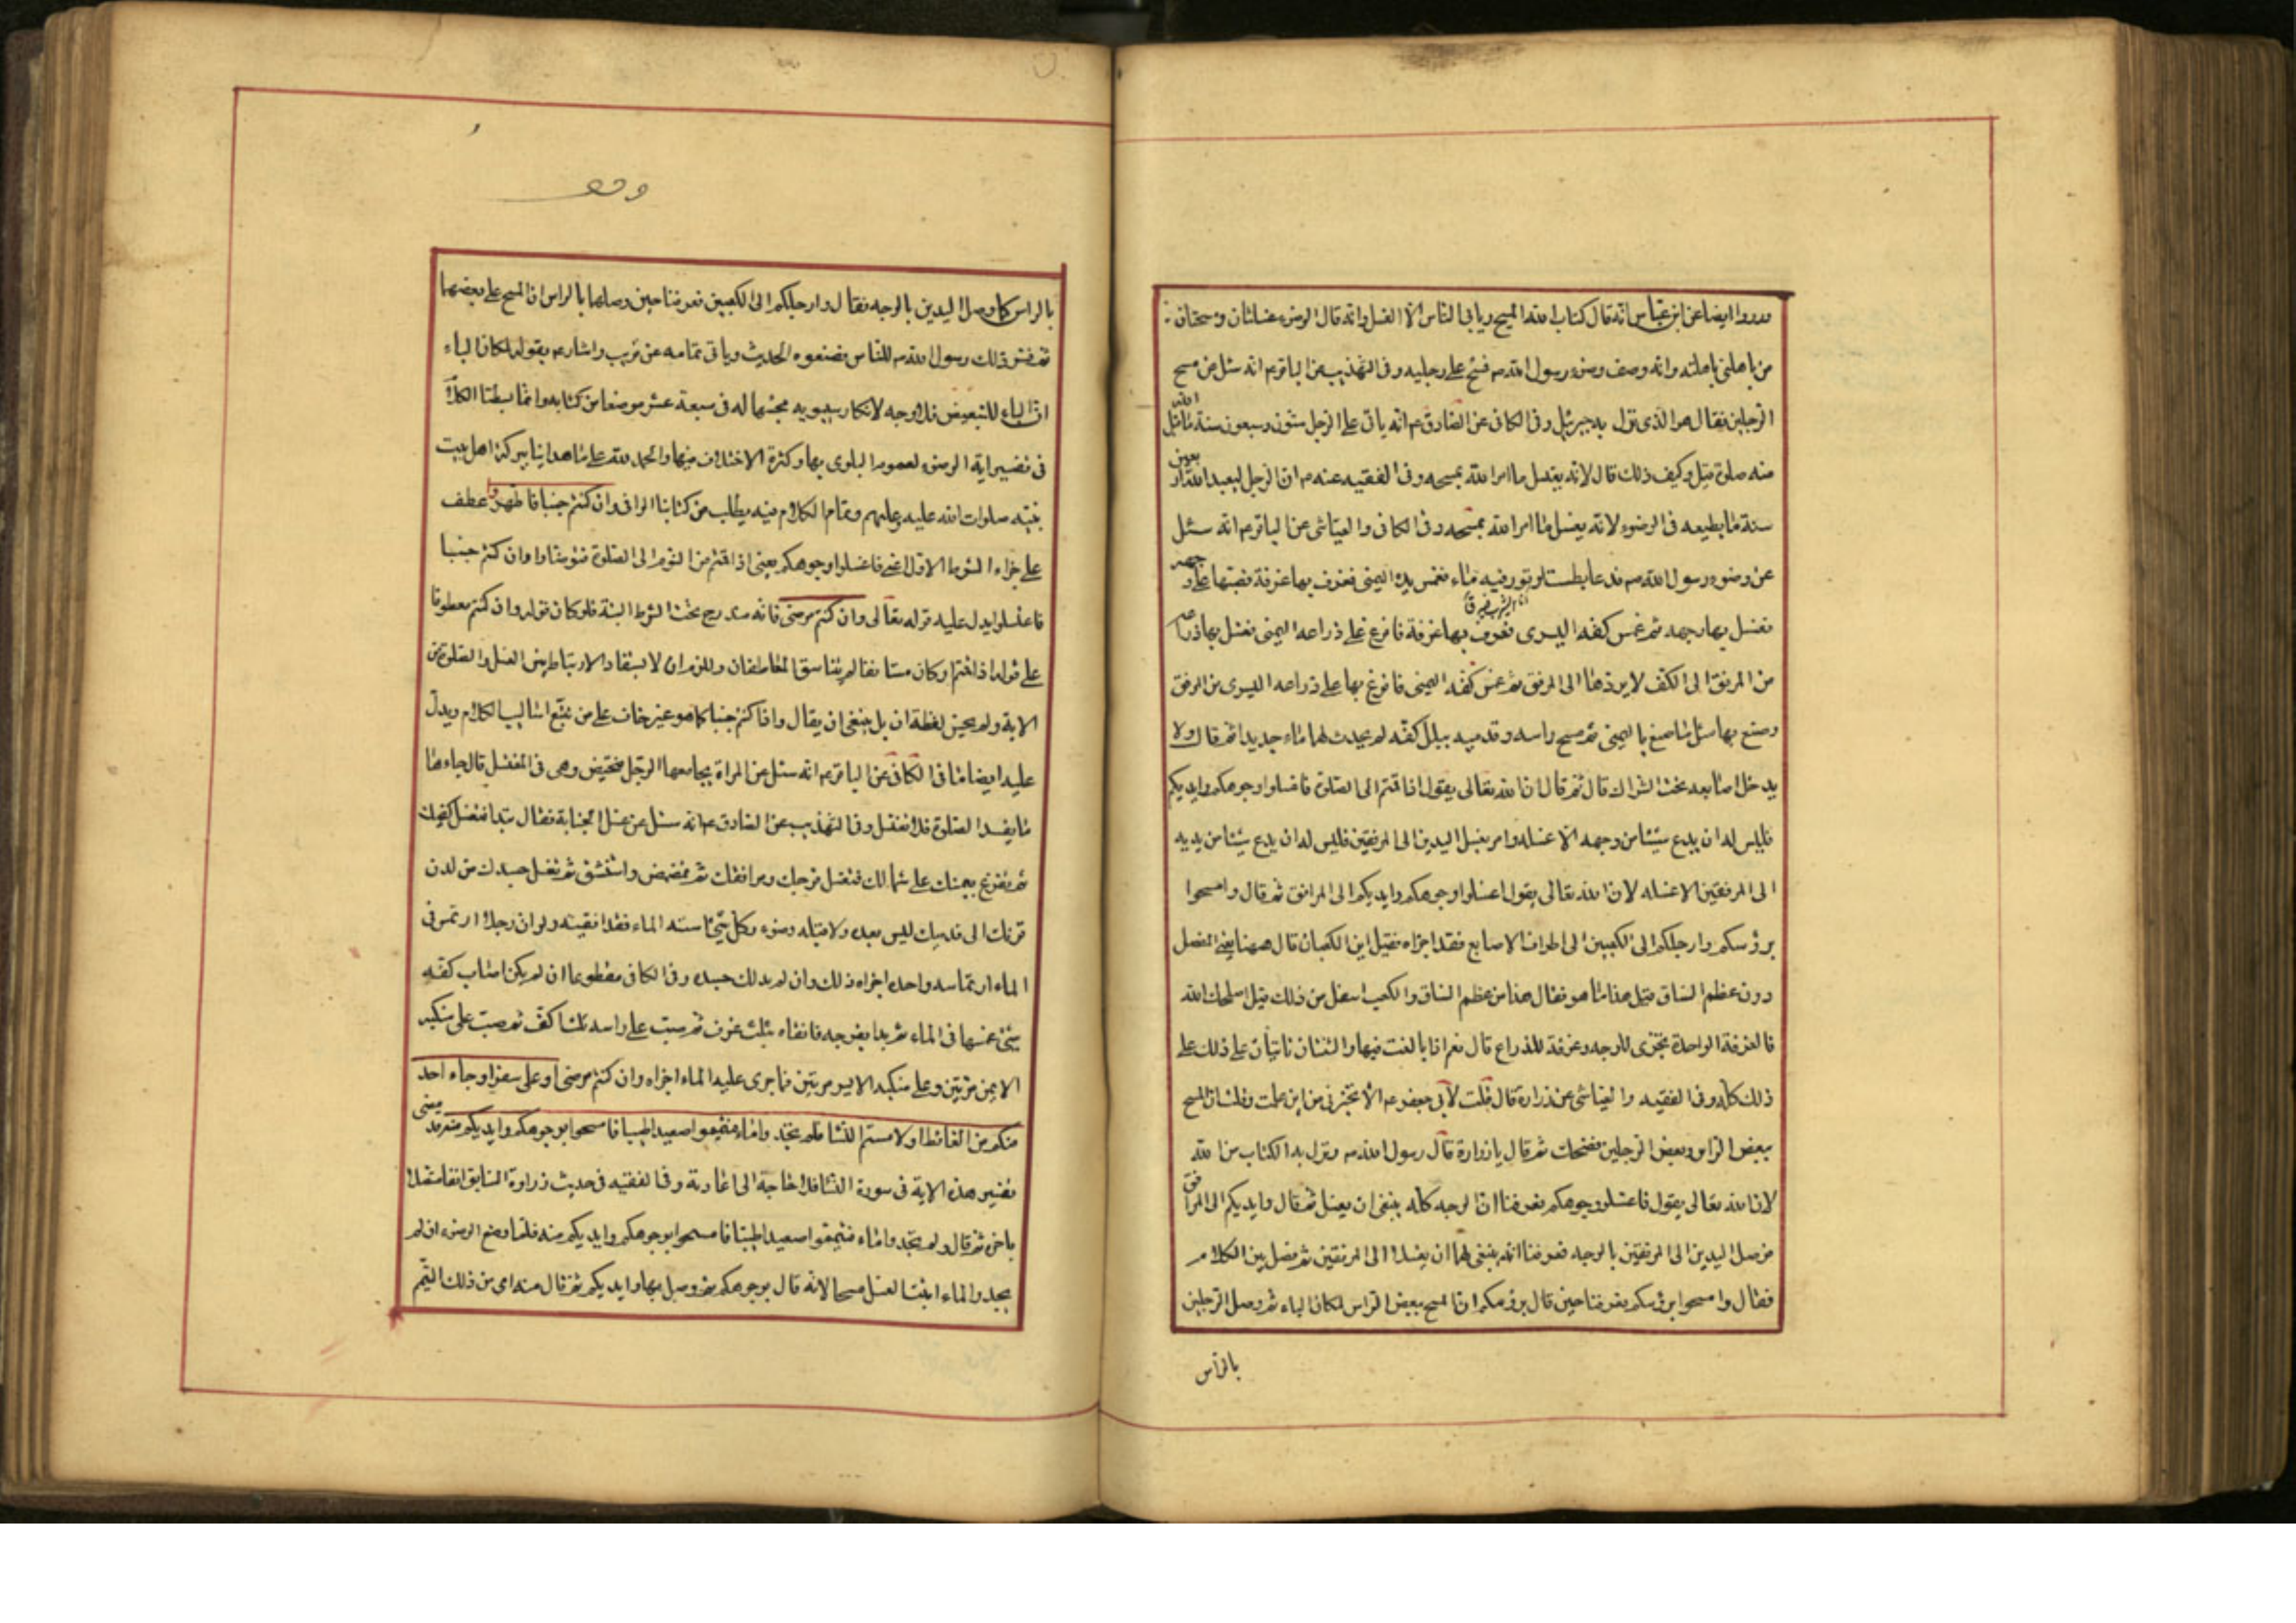 ورووا ايضا عن ابن عباس انه قال كتاب الله المسح ويابى الناس الا الغسل وانه قال الوضوء غسلتان ومسحتان
من باهلني باهلته وانه وصف وضوء رسول الله ص فمسح على رجليه وفي التهذيب عن الباقر ع انه سئل عن مسح
الرجلين فقال هو الذي نزل به جبرئيل وفي الكافي عن الصادق ع انه ياتي على الرجل ستون وسبعون سنة ما قبل الله
منه صلوة قيل وكيف ذلك قال لانه يغسل ما امر الله بمسحه وفي الفقيه عنه ع ان الرجل ليعبد الله اربعين
سنة ما يطيعه في الوضوء لانه يغسل ما امر الله بمسحه وفي الكافي والعياشي عن الباقر ع انه سئل
عن وضوء رسول الله ص فدعا بطست او تور فيه ماء فغمس يده اليمنى فغرف بها غرفة فصبها على وجهه
فغسل بها وجهه ثم غمس كفه اليسرى فغرف بها غرفة فافرغ على ذراعه اليمنى فغسل بها ذراعه
من المرفق الى الكف لا يردها الى المرفق ثم غمس كفه اليمنى فافرغ بها على ذراعه اليسرى من المرفق
وصنع بها مثل ما صنع باليمنى ثم مسح راسه وقدميه ببلل كفه لم يحدث لهما ماء جديدا ثم قال ولا
يدخل اصابعه تحت الشراك قال ثم قال ان الله تعالى يقول اذا قمتم الى الصلوة فاغسلوا وجوهكم وايديكم
فليس له ان يدع شيئا من وجهه الا غسله وامر بغسل اليدين الى المرفقين فليس له ان يدع شيئا من يديه
الى المرفقين الا غسله لان الله تعالى يقول اغسلوا وجوهكم وايديكم الى المرافق ثم قال وامسحوا
برؤسكم وارجلكم الى الكعبين الى اطراف الاصابع فقد اجزاه فقيل اين الكعبان قال ههنا يعني المفصل
دون عظم الساق فقيل هذا ما هو فقال هذا من عظم الساق والكعب اسفل من ذلك فقيل اصلحك الله
فالغرفة الواحدة تجزي للوجه وغرفة للذراع قال نعم اذا بالغت فيها والثنتان تاتيان على ذلك على
ذلك كله وفي الفقيه والعياشي عن زرارة قال قلت لابي جعفر ع الا تخبرني من اين علمت وقلت ان المسح
ببعض الراس وبعض الرجلين فضحك ثم قال يا زرارة قال رسول الله ص ونزل به الكتاب من الله
لان الله تعالى يقول فاغسلوا وجوهكم فعرفنا ان الوجه كله ينبغي ان يغسل ثم قال وايديكم الى المرافق
فوصل اليدين الى المرفقين بالوجه فعرفنا انه ينبغي لهما ان يغسلا الى المرفقين ثم فصل بين الكلام
فقال وامسحوا برؤسكم فعرفنا حين قال برؤسكم ان المسح ببعض الراس لمكان الباء ثم وصل الرجلين
بالراس
بالراس كما وصل اليدين بالوجه فقال وارجلكم الى الكعبين فعرفنا حين وصلها بالراس ان المسح على بعضهما
ثم فسر ذلك رسول الله ص للناس فضيعوه الحديث وياتي تمامه عن قريب واشار ع بقوله لمكان الباء
ان الباء للتبعيض فلا وجه لانكار سيبويه مجيئها له في سبعة عشر موضعا من كتابه وانما بسطنا الكلام
في تفسير اية الوضوء لعموم البلوى بها وكثرة الاختلاف فيها والحمد لله على ما هدانا ببركة اهل بيت
نبيه صلوات الله عليه وعليهم وتمام الكلام فيه يطلب من كتابنا الوافي وان كنتم جنبا فاطهروا عطف
على جزاء الشرط الاول اعني فاغسلوا وجوهكم يعني اذا قمتم من النوم الى الصلوة فتوضأوا وان كنتم جنبا
فاغسلوا يدل عليه قوله تعالى وان كنتم مرضى فانه مندرج تحت الشرط البتة فلو كان قوله وان كنتم معطوفا
على قوله اذا قمتم او كان مستانفا لم يتناسق المتعاطفان وللزم ان لا يستفاد الارتباط بين الغسل والصلوة من
الاية ولم يحسن لفظة ان بل ينبغي ان يقال واذا كنتم جنبا كما هو غير خاف على من تتبع اساليب الكلام ويدل
عليه ايضا ما في الكافي عن الباقر ع انه سئل عن المراة يجامعها الرجل فتحيض وهي في المغتسل قال جاءها
ما يفسد الصلوة فلا تغتسل وفي التهذيب عن الصادق ع انه سئل عن غسل الجنابة فقال تبدا فتغسل كفيك
ثم تفرغ بيمينك على شمالك فتغسل فرجك ومرافقك ثم تمضمض واستنشق ثم تغسل جسدك من لدن
قرنك الى قدميك ليس بعده ولا قبله وضوء وكل شيء امسسته الماء فقد انقيته ولو ان رجلا ارتمس في
الماء ارتماسة واحدة اجزاه ذلك وان لم يدلك جسده وفي الكافي مقطوعا ان لم يكن اصاب كفه
شيء غمسها في الماء ثم بدا بفرجه فانقاه بثلث غرف ثم صب على راسه ثلث اكف ثم صب على منكبه
الايمن مرتين وعلى منكبه الايسر مرتين فما جرى عليه الماء اجزاه وان كنتم مرضى او على سفر او جاء احد
منكم من الغائط او لامستم النساء فلم تجدوا ماء فتيمموا صعيدا طيبا فامسحوا بوجوهكم وايديكم منه قد مضى
تفسير هذه الاية في سورة النساء فلا حاجة الى اعادته وفي الفقيه في حديث زرارة السابق انفا متصلا
باخره ثم قال ولم تجدوا ماء فتيمموا صعيدا طيبا فامسحوا بوجوهكم وايديكم منه فلما وضع الوضوء ان لم
يجدوا الماء اثبت الغسل مسحا لانه قال بوجوهكم ثم وصل بها وايديكم ثم قال منه اي من ذلك التيمم